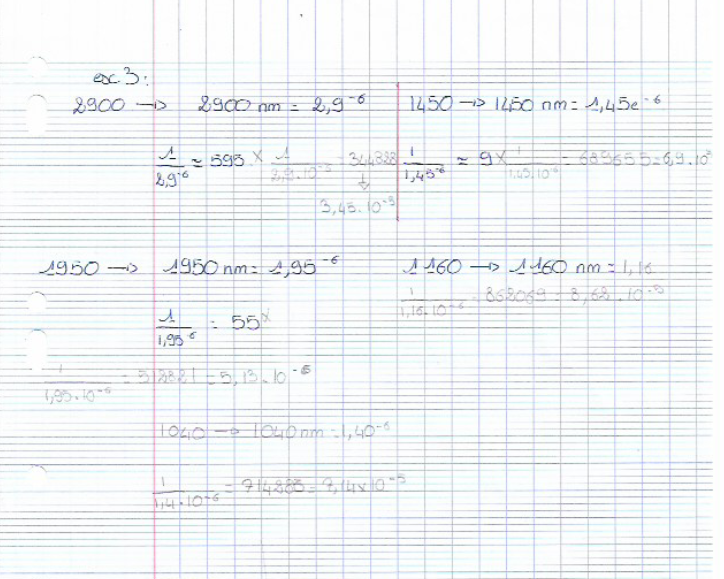 exc 3:
2900 → 2900 nm = 2,9⁻⁶
1450 → 1450 nm = 1,45e⁻⁶
1/2,9⁻⁶ ≈ 595 × 1/2,9.10⁻⁵ = 344828
↓
3,45.10⁻⁵
1/1,45⁻⁶ ≈ 9 × 1/1,45.10⁻⁶ = 689655 = 6,9.10⁵
1950 → 1950 nm = 1,95⁻⁶
1160 → 1160 nm = 1,16
1/1,16.10⁻⁶ = 862069 = 8,62.10⁻⁵
1/1,95⁻⁶ = 55 ×
1/1,95.10⁻⁶ = 512821 = 5,13.10⁻⁵
1040 → 1040 nm = 1,40⁻⁶
1/1,4.10⁻⁶ = 714285 = 7,14×10⁻⁵